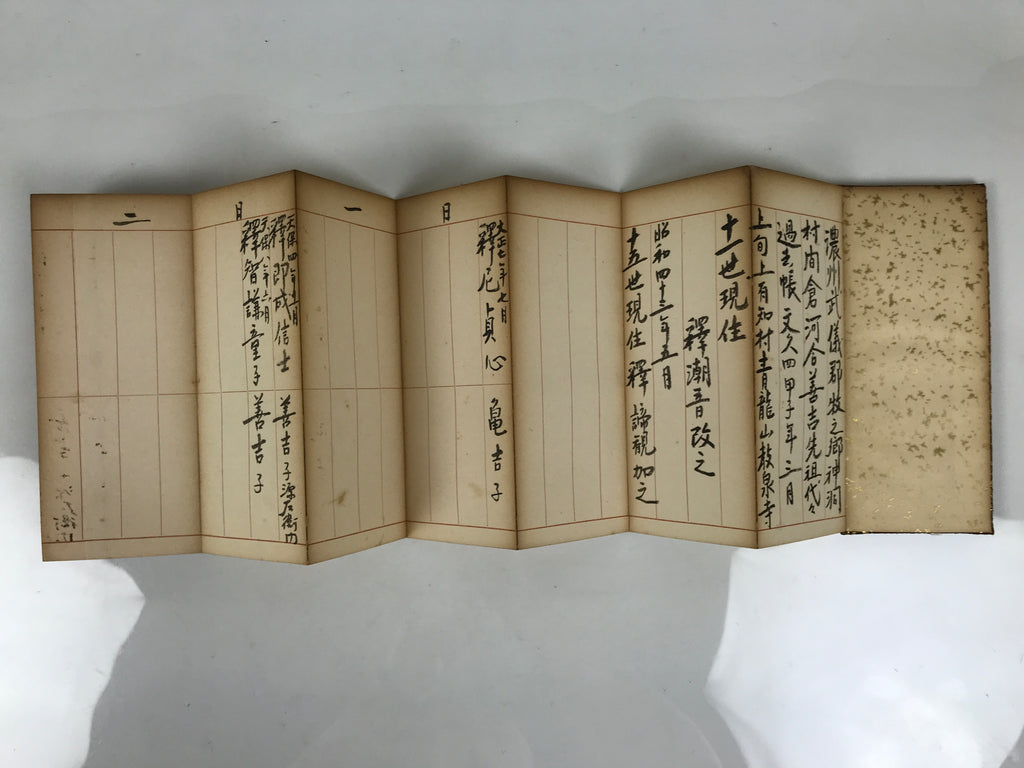 濃州武儀郡牧之郷神洞
村間倉河合善吉先祖代々
過去帳 文久四甲子年三月
上旬上有知村青龍山教泉寺
十一世現住
釋潮音改之
昭和四十三年五月
十五世現住 釋 諦観加之
一日
大正七年七月
釋尼貞心 亀吉子
二日
天保四年十一月
釋即成信士 善吉子源右衛門
釋智謙童子 善吉子